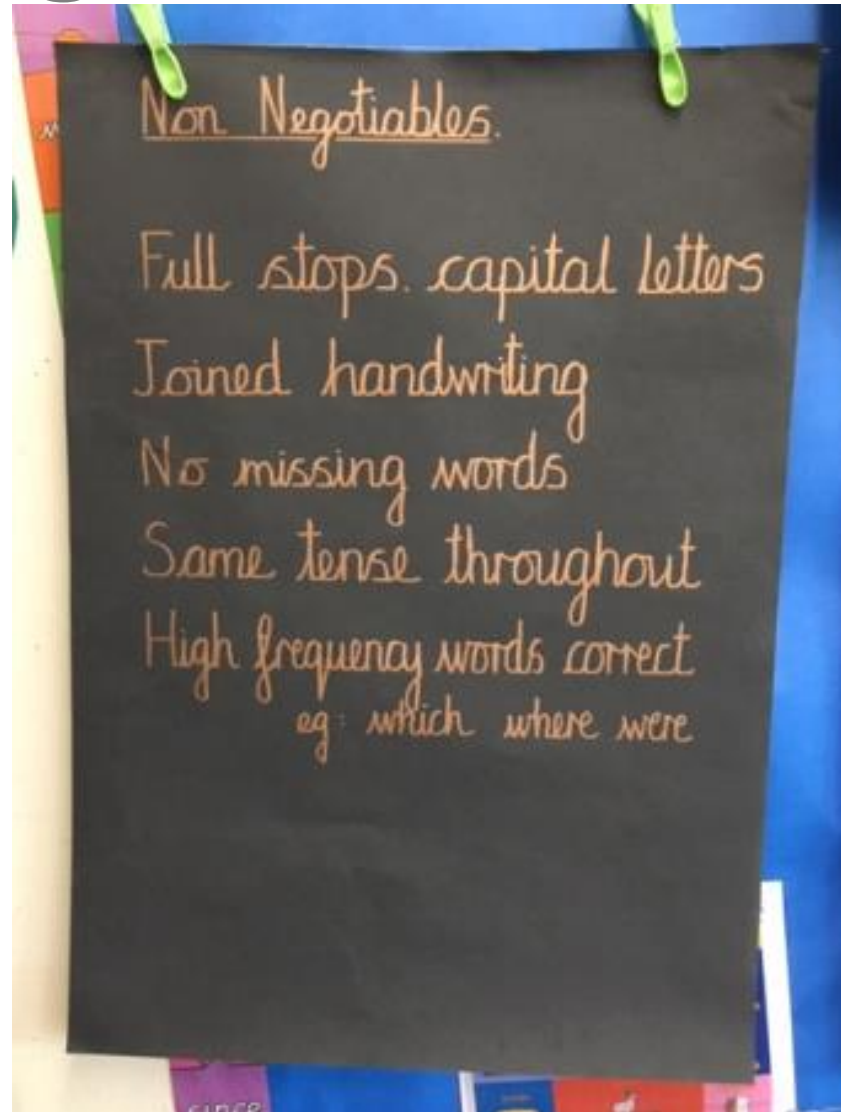 Non Negotiables.
Full stops. capital letters
Joined handwriting
No missing words
Same tense throughout
High frequency words correct
eg: which where were
since